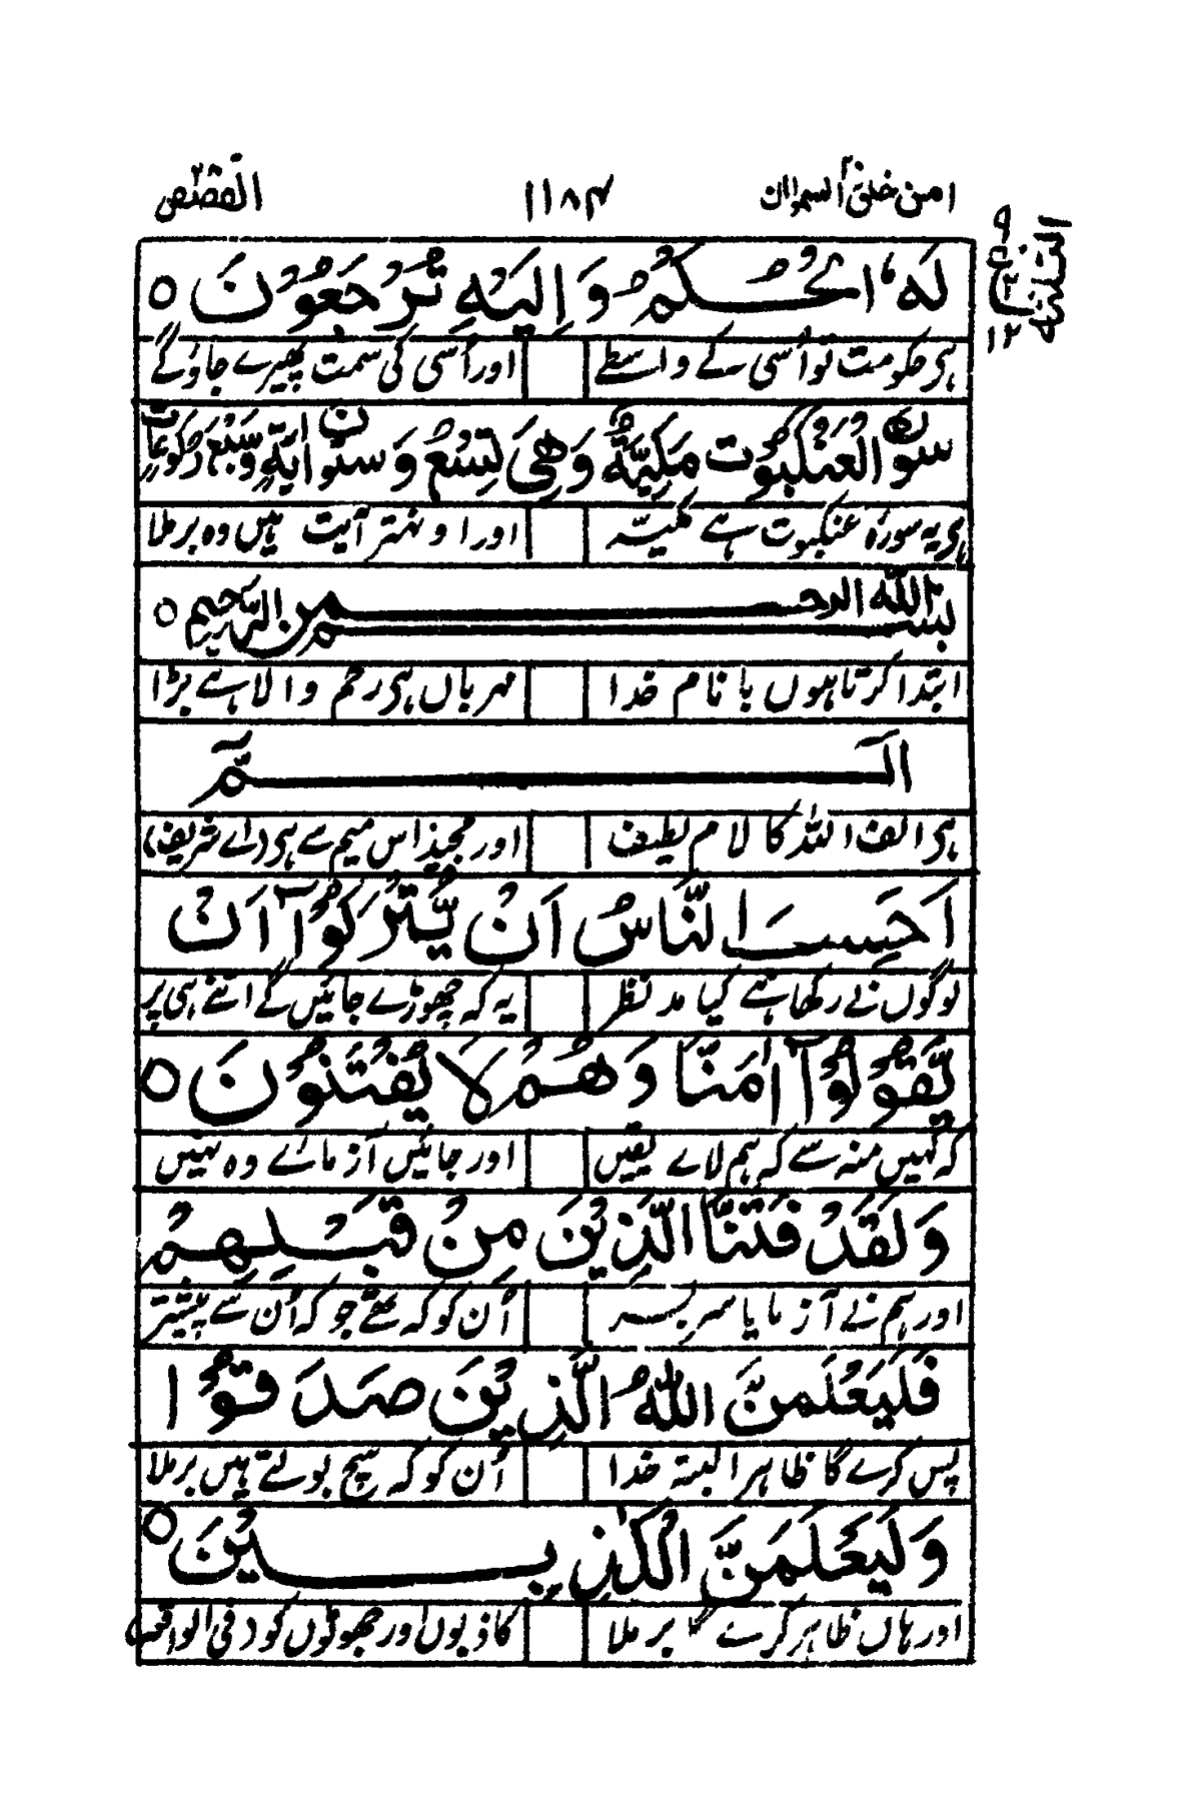 امن خلق السموات ۲۰ ۱۱۸۴ القصص ۲۸
لَهُ الْحُكْمُ وَ اِلَيْهِ تُرْجَعُوْنَ ○
ہی حکومت تو اُسی کے واسطے اور اُسی کی سمت پھیرے جاؤگے
سورة العنكبوت مكية وهي تسع و ستون اية و سبع ركوعات
ہی یہ سورہ عنکبوت ہے مکیّہ اور ا و نہتر آیت ہیں وہ بر ملا
بسم الله الرحمن الرحيم ○
ابتدا کرتا ہوں با نام خدا مہرباں ہی رحم والا ہے بڑا
الٓمّٓ
ہی الف اللہ کا لام لطیف اور مجید اس میم سے ہی (اے شریف)
اَحَسِبَ النَّاسُ اَنْ يُّتْرَكُوْٓا اَنْ
لوگوں نے رکھا ہے کیا مد نظر یہ کہ چھوڑے جائیں گے اتنے ہی پر
يَّقُوْلُوْٓا اٰمَنَّا وَهُمْ لَا يُفْتَنُوْنَ ○
کہ کہیں منہ سے کہ ہم لائے یقیں اور جائیں آزمائے وہ نہیں
وَلَقَدْ فَتَنَّا الَّذِيْنَ مِنْ قَبْلِهِمْ
اور ہم نے آزمایا سر بسر اُن کو کہ تھے جو کہ اُن سے پیشتر
فَلَيَعْلَمَنَّ اللهُ الَّذِيْنَ صَدَقُوْا
پس کرے گا ظاہر البتہ خدا اُن کو کہ سچ بولتے ہیں بر ملا
وَلَيَعْلَمَنَّ الْكٰذِبِيْنَ ○
اور ہاں ظاہر کرے گا بر ملا کاذبوں اور جھوٹوں کو (فی الواقعہ)